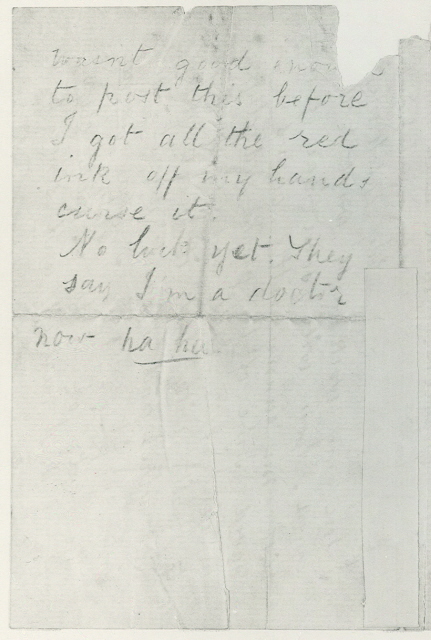 wasnt good enough
to post this before
I got all the red
ink off my hands
curse it.
No luck yet. They
say I'm a doctor
now ha ha